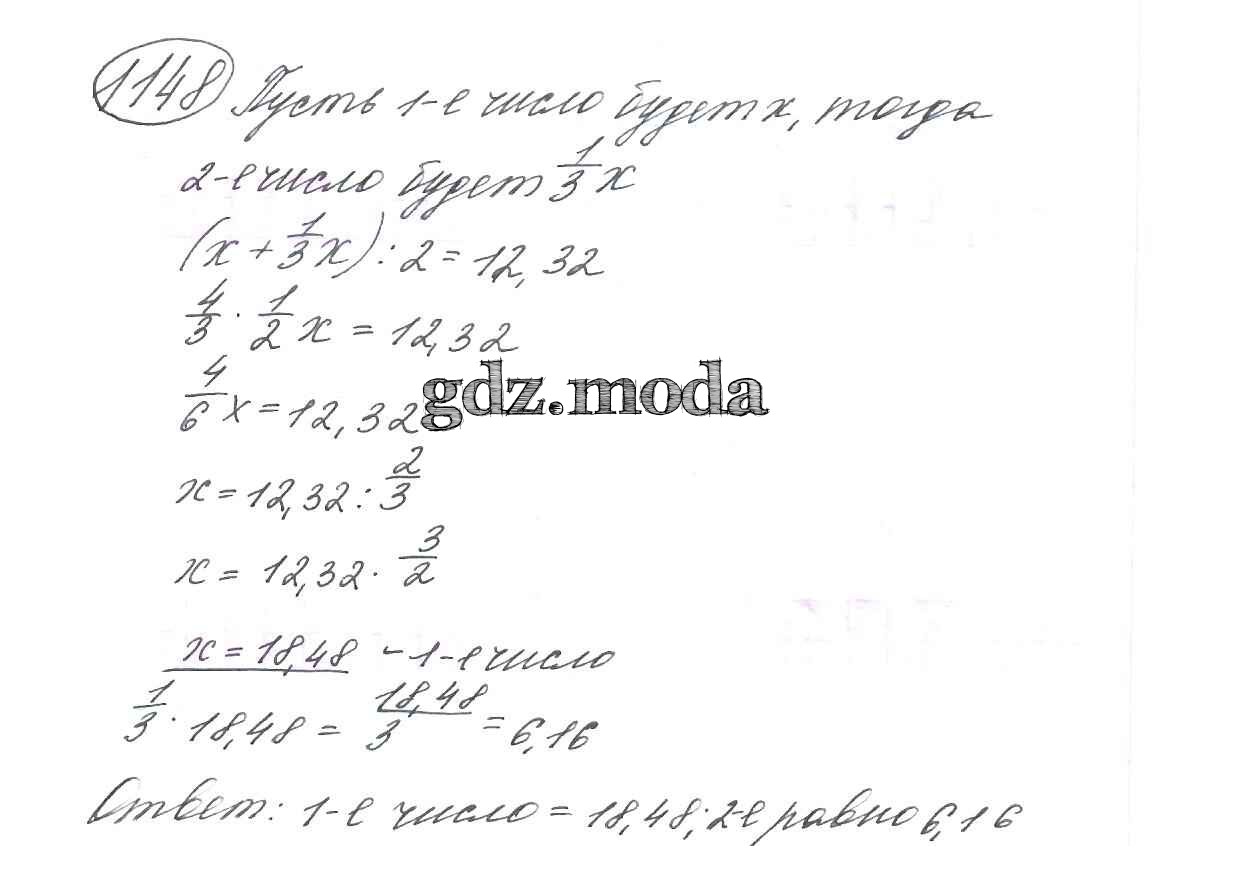 1148 Пусть 1-е число будет x, тогда
2-е число будет 1/3 x
(x + 1/3 x) : 2 = 12,32
4/3 · 1/2 x = 12,32
4/6 x = 12,32
gdz.moda
x = 12,32 : 2/3
x = 12,32 · 3/2
x = 18,48 - 1-е число
1/3 · 18,48 = 18,48/3 = 6,16
Ответ: 1-е число = 18,48; 2-е равно 6,16